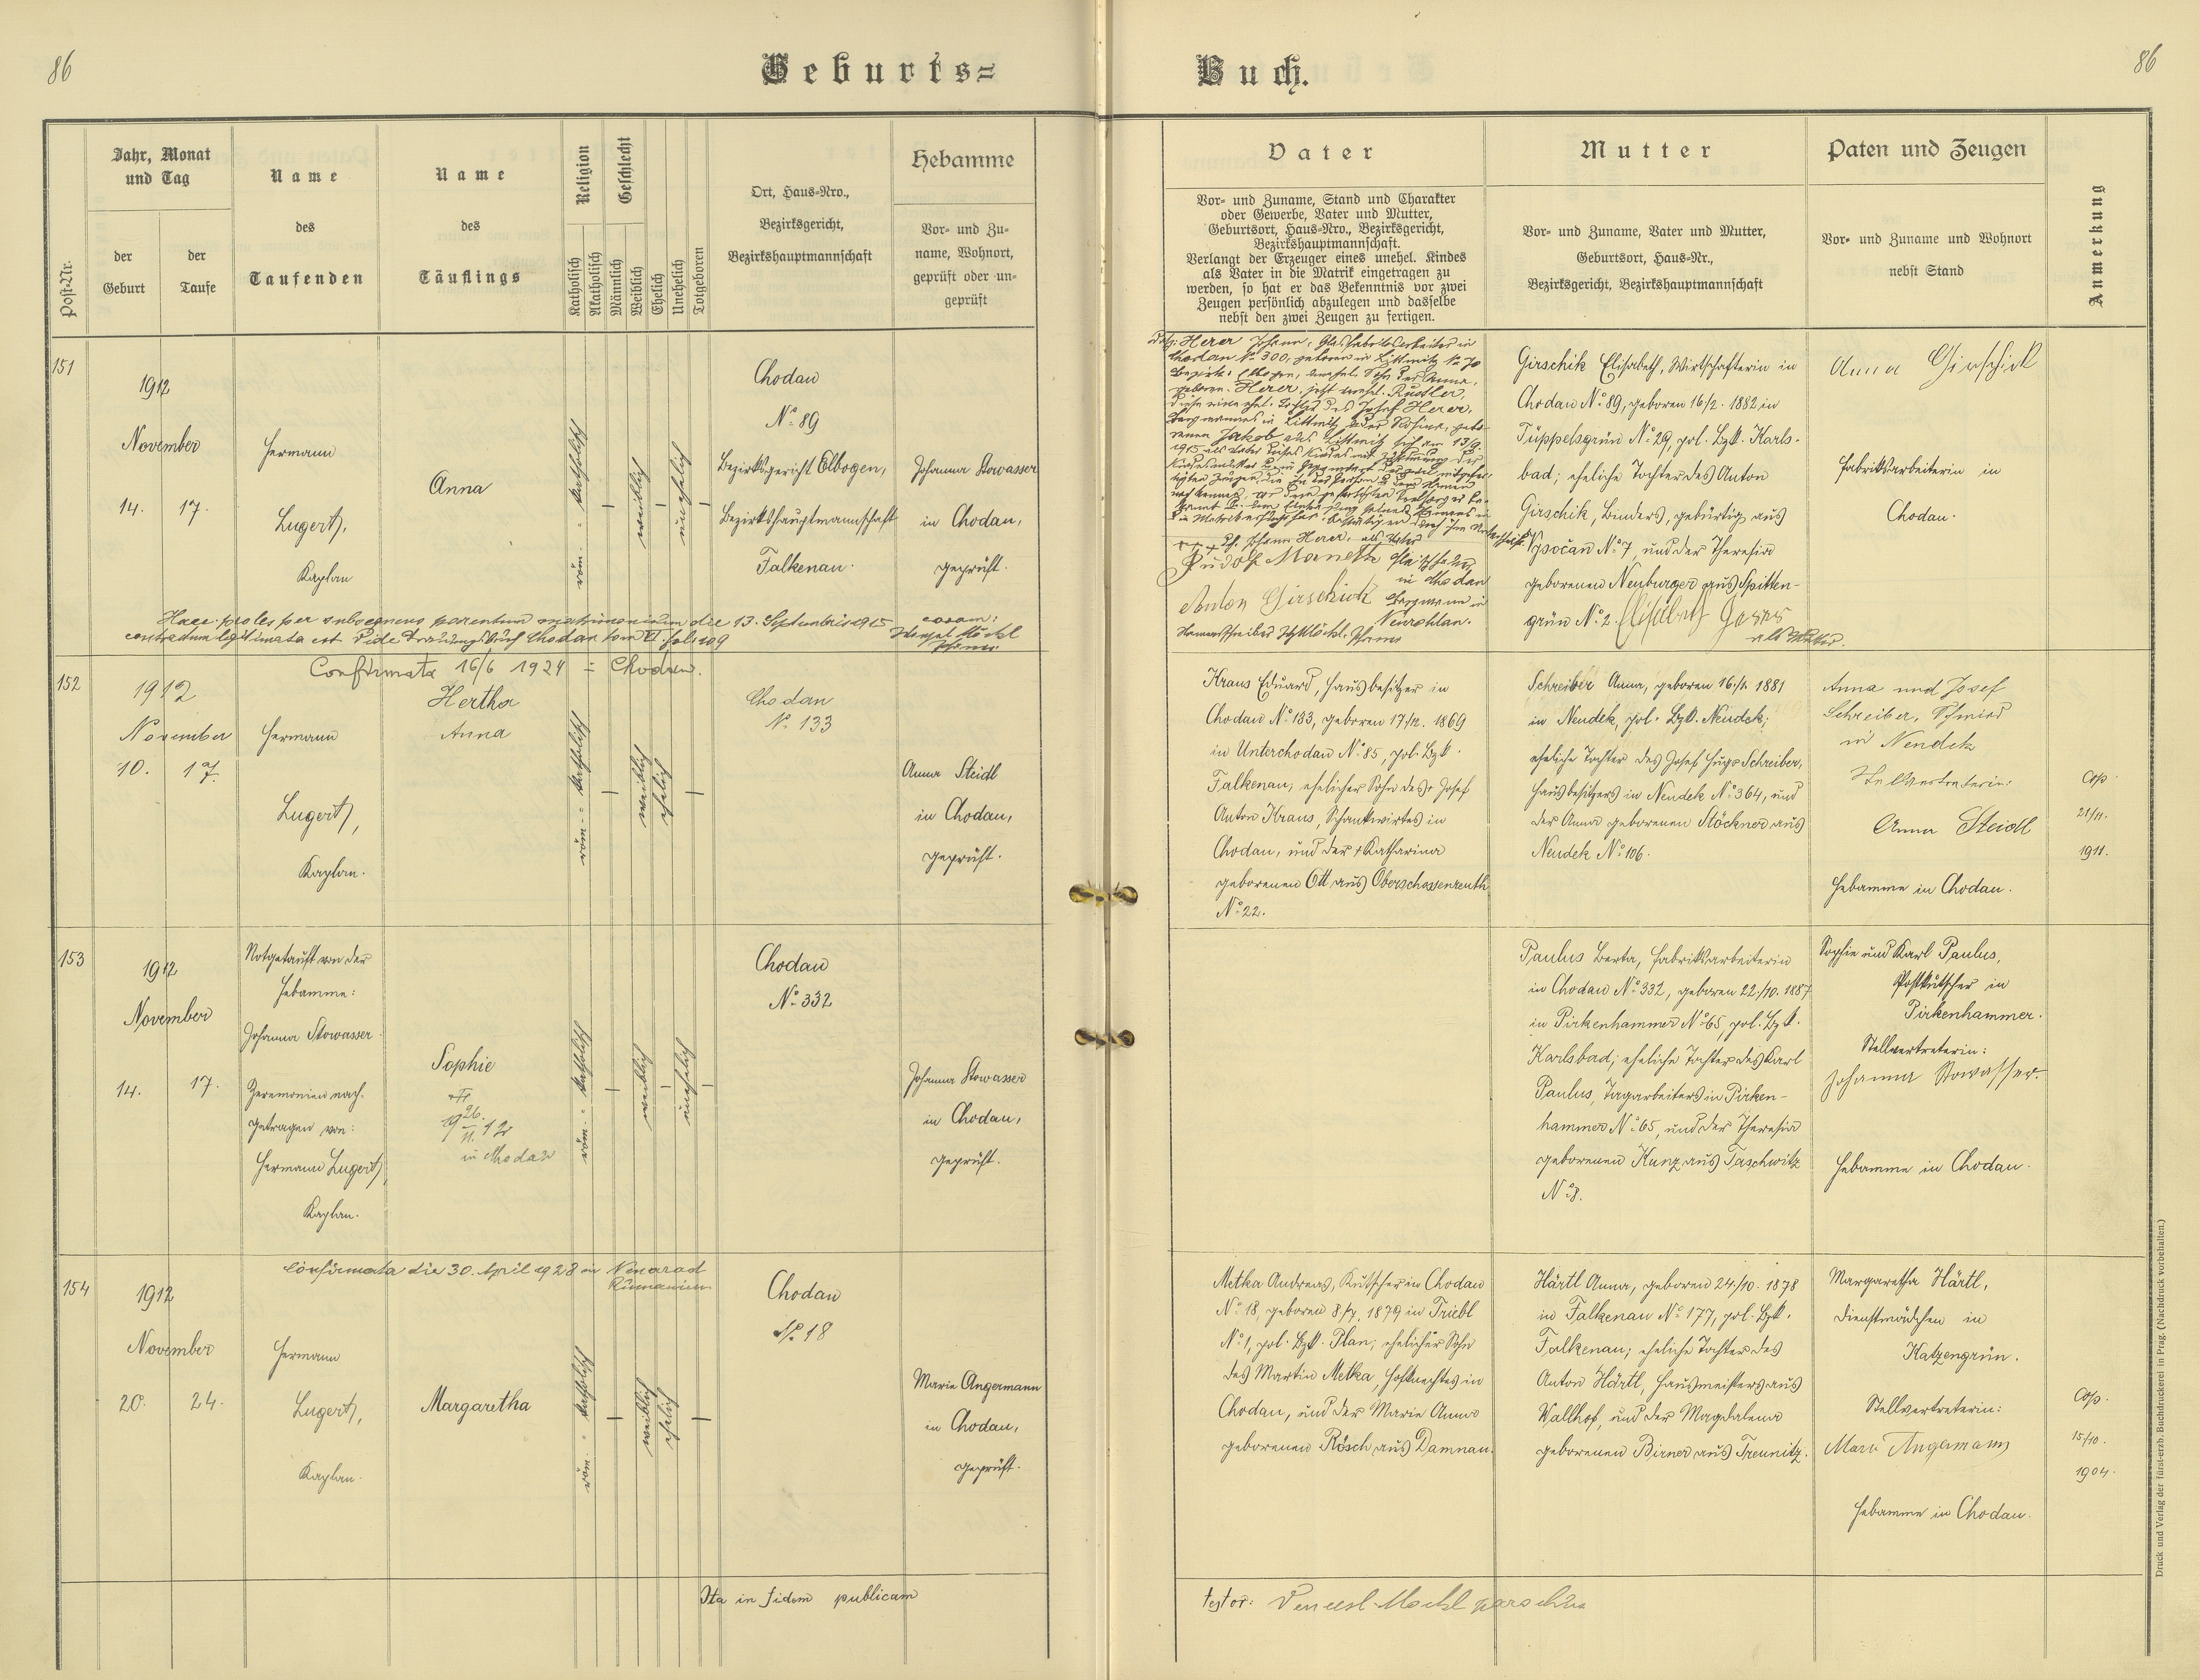 86
Geburts=
Buch.
86
Post-Nr.
Jahr, Monat
und Tag
der
Geburt
der
Taufe
Name
des
Taufenden
Name
des
Täuflings
Religion
Katholisch
Akatholisch
Geschlecht
Männlich
Weiblich
Ehelich
Unehelich
Totgeboren
Ort, Haus-Nro.,
Bezirksgericht,
Bezirkshauptmannschaft
Hebamme
Vor- und Zu-
name, Wohnort,
geprüft oder un-
geprüft
Vater
Vor- und Zuname, Stand und Charakter
oder Gewerbe, Vater und Mutter,
Geburtsort, Haus-Nro., Bezirksgericht,
Bezirkshauptmannschaft.
Verlangt der Erzeuger eines unehel. Kindes
als Vater in die Matrik eingetragen zu
werden, so hat er das Bekenntnis vor zwei
Zeugen persönlich abzulegen und dasselbe
nebst den zwei Zeugen zu fertigen.
Mutter
Vor- und Zuname, Vater und Mutter,
Geburtsort, Haus-Nr.,
Bezirksgericht, Bezirkshauptmannschaft
Paten und Zeugen
Vor- und Zuname und Wohnort
nebst Stand
Anmerkung
151
1912
November
14. 17.
Hermann
Lugert,
Kaplan
Anna
röm. = katholisch
weiblich
unehelich
Chodau
No 89
Bezirksgericht Elbogen,
Bezirkshauptmannschaft
Falkenau.
Johanna Stowasser
in Chodau,
geprüft.
Herer Johann, Glasfabriksarbeiter in
Chodau No 300, geboren in Littmitz No 70
Bezirk: Elbogen, unehel. Sohn der Anna,
geboren. Herer, jetzt verehel. Rustler,
diese eine ehel. Tochter des Josef Herer,
Bergmannes in Littmitz
Jakob aus Littmitz
Johann Herer, als Vater
Rudolf Maneth
in Chodau
Anton Girschick Bergmann in
Neurohlau.
Girschik Elisabeth, Wirtschafterin in
Chodau No 89, geboren 16/2. 1882 in
Tüppelsgrün No 29, pol. Bzk. Karls-
bad; eheliche Tochter des Anton
Girschik, Binders, gebürtig aus
Vysočan No 7, und der Theresia
geborenen Neuburger aus Spitten-
grün No 2.
als Mutter.
Anna Girschick
Fabriksarbeiterin in
Chodau.
Haec proles per subsequens parentum matrimonium die 13. Septembris 1915 coram:
contractum legitimata est Vide Trauungsbuch Chodau tom VI. fol: 109
Wenzel Möckl
Pfarrer
152
Confirmata 16/6 1924 = Chodau.
1912
November
10. 17.
Hermann
Lugert,
Kaplan.
Hertha
Anna
röm. = katholisch
weiblich
ehelich
Chodau
No 133
Anna Steidl
in Chodau,
geprüft.
Kraus Eduard, Hausbesitzer in
Chodau No 133, geboren 17/12. 1869
in Unterchodau No 85, pol. Bzk.
Falkenau, ehelicher Sohn des Josef
Anton Kraus, Schankwirtes in
Chodau, und der + Katharina
geborenen Ott aus Oberschossenreuth
No 22.
Schreiber Anna, geboren 16./1. 1881
in Neudek, pol. Bzk. Neudek;
eheliche Tochter des Josef Hugo Schreiber,
Hausbesitzers in Neudek No 364, und
der Anna geborenen Stöckner aus
Neudek No 106.
Anna und Josef
Schreiber, Schmied
in Neudek
Stellvertreterin:
Anna Steidl
Hebamme in Chodau.
Cop.
21/11.
1911.
153
1912
November
14. 17.
Notgetauft von der
Hebamme:
Johanna Stowasser
Zeremonien nach-
getragen von:
Hermann Lugert,
Kaplan.
Sophie
26.
19 — 12
11.
in Chodau
röm. = katholisch
weiblich
unehelich
Chodau
No 332
Johanna Stowasser
in Chodau,
geprüft.
Paulus Berta, Fabriksarbeiterin
in Chodau No 332, geboren 22./10. 1887
in Pirkenhammer No 65, pol. Bzk.
Karlsbad; eheliche Tochter des Karl
Paulus, Tagarbeiters in Pirken-
hammer No 65, und der Theresia
geborenen Kunz aus Taschwitz
No 8.
Sophie und Karl Paulus,
Postkutscher in
Pirkenhammer.
Stellvertreterin:
Johanna Stowasser.
Hebamme in Chodau.
154
Confirmata die 30. April 1928 in Neuarad
Rumänien
1912
November
20. 24.
Hermann
Lugert,
Kaplan.
Margaretha
röm. = katholisch
weiblich
ehelich
Chodau
No 18
Marie Angermann
in Chodau,
geprüft.
Metka Andreas, Kutscher in Chodau
No 18, geboren 8/7. 1879 in Triebl
No 1, pol. Bzk. Plan; ehelicher Sohn
des Martin Metka, Hofknechtes in
Chodau, und der Marie Anna
geborenen Rösch aus Damnau.
Härtl Anna, geboren 24./10. 1878
in Falkenau No 177, pol. Bzk.
Falkenau; eheliche Tochter des
Anton Härtl, Hausmeisters aus
Wallhof, und der Magdalena
geborenen Birner aus Treunitz.
Margaretha Härtl,
Dienstmädchen in
Katzengrün.
Stellvertreterin:
Marie Angermann
Hebamme in Chodau.
Cop.
15/10.
1904.
Ita in fidem publicam
testor: Wencesl. Möckl parochus
Druck und Verlag der fürst-erzb. Buchdruckerei in Prag. (Nachdruck vorbehalten.)